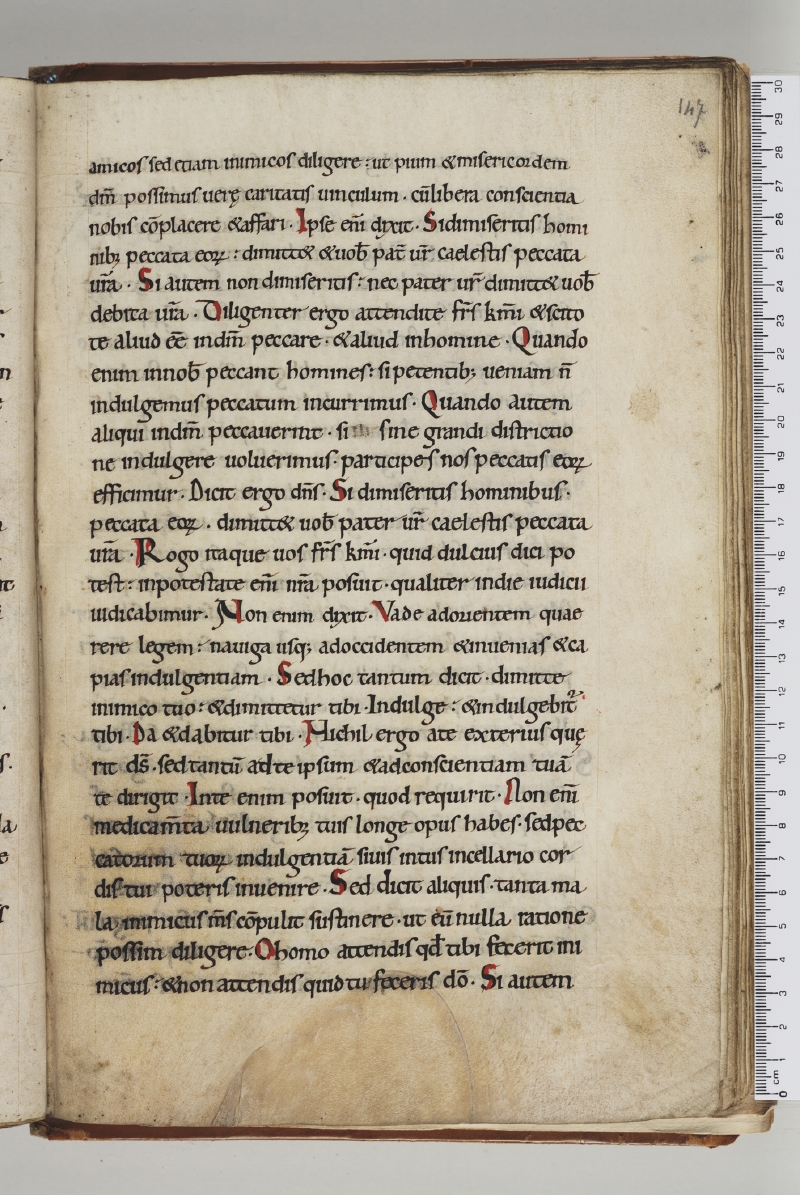 147
amicos sed etiam inimicos diligere : ut pium & misericordem
dm̄ possimus uerę caritatis uinculum · cū libera conscientia
nobis cōplacere & affari · Ipse eni̅ dixit · Si dimiseritis homi
nibꝫ peccata eoꝝ : dimitt& & uob̄ pat̄ ur̄ caelestis peccata
ur̄a · Si autem non dimiseritis : nec pater ur̄ dimitt& uob̄
debita ur̄a · Diligenter ergo attendite fr̄s km̄i & scito
te aliud ēē in dm̄ peccare · & aliud in homine · Quando
enim in nob̄ peccant homines : si petentibꝫ ueniam n̄
indulgemus peccatum incurrimus · Quando autem
aliqui in dm̄ peccauerint · si sine grandi districtio
ne indulgere uoluerimus · participes nos peccatis eoꝝ
efficimur · Dicit ergo dn̄s · Si dimiseritis hominibus ·
peccata eoꝝ · dimitt& uob̄ pater ur̄ caelestis peccata
ur̄a · Rogo itaque uos fr̄s km̄i · quid dulcius dici po
test : in potestate eni̅ nr̄a posuit · qualiter in die iudicii
iudicabimur · Non enim dixit · Vade ad orientem quae
rere legem : nauiga usqꝫ ad occidentem & inuenias & ca
pias indulgentiam · Sed hoc tantum dicit · dimitte
inimico tuo : & dimittetur tibi · Indulge : & indulgebit᷑
tibi · Da & dabitur tibi · Nichil ergo a te exterius quę
rit ds̄ · sed tantū ad te ipsum & ad conscientiam tuā
te dirigit · In te enim posuit · quod requirit · Non eni̅
medicam̄ta uulneribꝫ tuis longe opus habes · sed pec
catorum tuoꝝ indulgentiā si uis intus in cellario cor
dis tui poteris inuenire · Sed dicit aliquis · tanta ma
la inimicus m̄s cōpulit sustinere · ut eū nulla ratione
possim diligere · O homo attendis qd̄ tibi fecerit ini
micus : & non attendis quid tu feceris dō · Si autem
30
29
28
27
26
25
24
23
22
21
20
19
18
17
16
15
14
13
12
11
10
9
8
7
6
5
4
3
2
1
cm
0